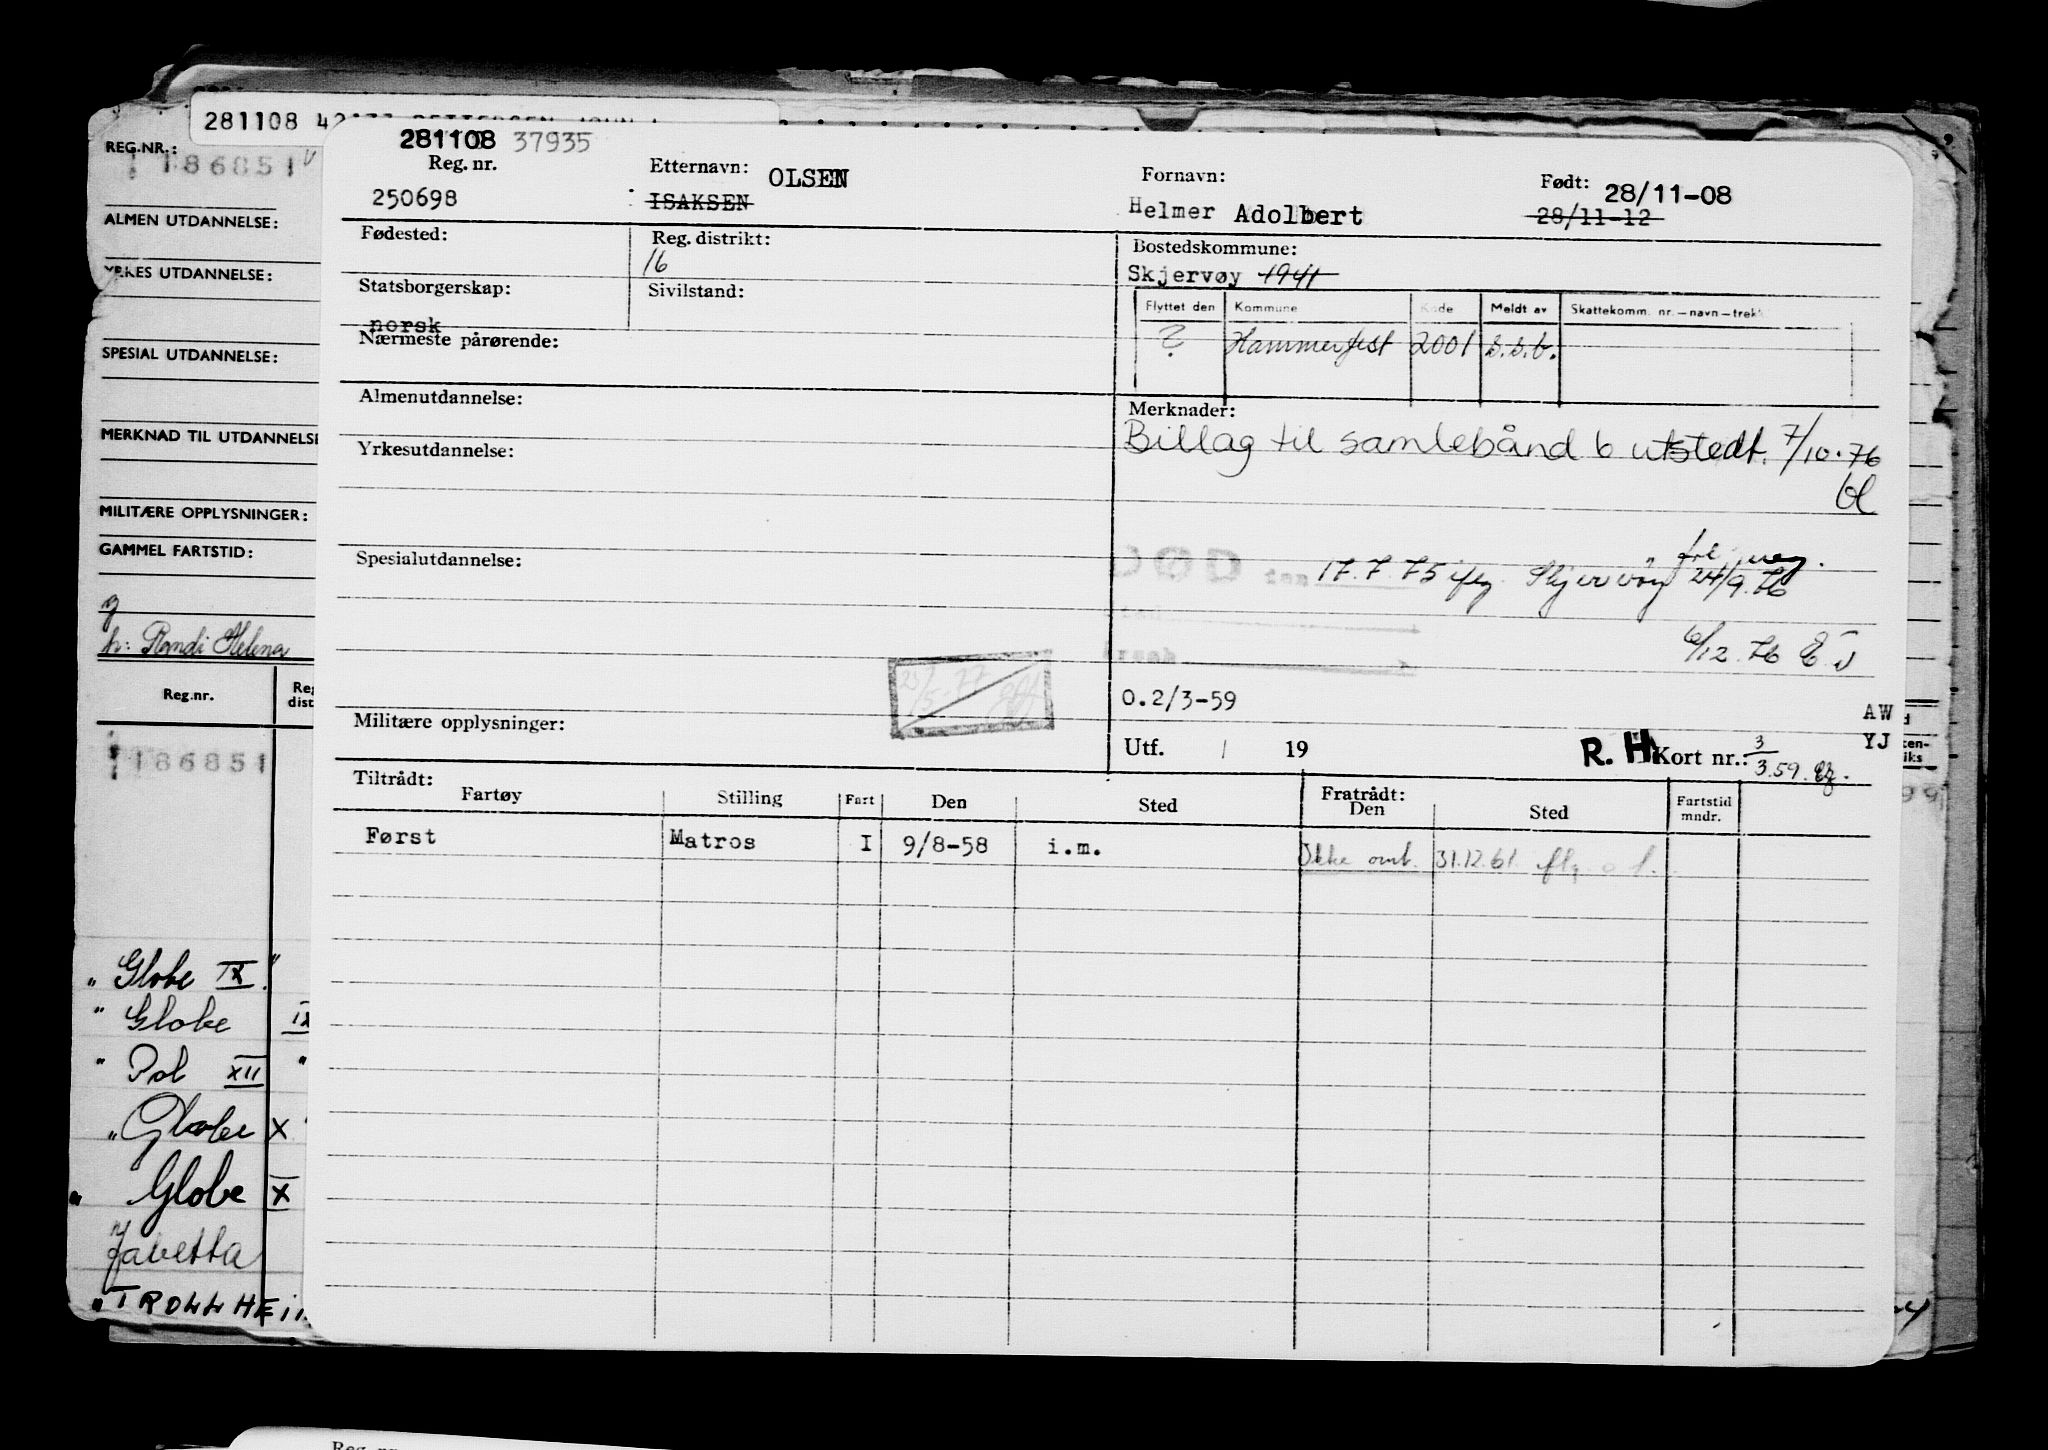 281108
REG.NR.:
186851
ALMEN UTDANNELSE:
YRKES UTDANNELSE:
SPESIAL UTDANNELSE:
MERKNAD TIL UTDANNELSE
MILITÆRE OPPLYSNINGER:
GAMMEL FARTSTID:
h: Randi Helena
Reg.nr.
Reg
dist
186851
" Globe IX "
" Globe IX
" Pol XII "
" Globe X
" Globe X
" Javetta
" TROLLHEI
281108 37935
Reg. nr. Etternavn: OLSEN Fornavn: Født: 28/11-08
250698 ISAKSEN Helmer Adolbert 28/11-12
Fødested: Reg. distrikt: Bostedskommune:
16 Skjervøy 1941
Statsborgerskap: Sivilstand:
norsk
Flyttet den Kommune Kode Meldt av Skattekomm. nr.—navn—trekk
? Hammerfest 2001 s.s.b.
Nærmeste pårørende:
Almenutdannelse: Merknader:
Billag til samlebånd 6 utstedt. 7/10.76
bl
Yrkesutdannelse:
Spesialutdannelse:
17.7.75 Skjervøy 24/9.76
6/12.76
23/5-77
O.2/3-59
Militære opplysninger:
AW
YJ
Utf. / 19 R.H. Kort nr.: 3/3.59.
Tiltrådt: Fratrådt:
Fartøy Stilling Fart Den Sted Den Sted Fartstid
mndr.
Først Matros I 9/8-58 i.m. Ikke omb. 31.12.61
Reg. nr.